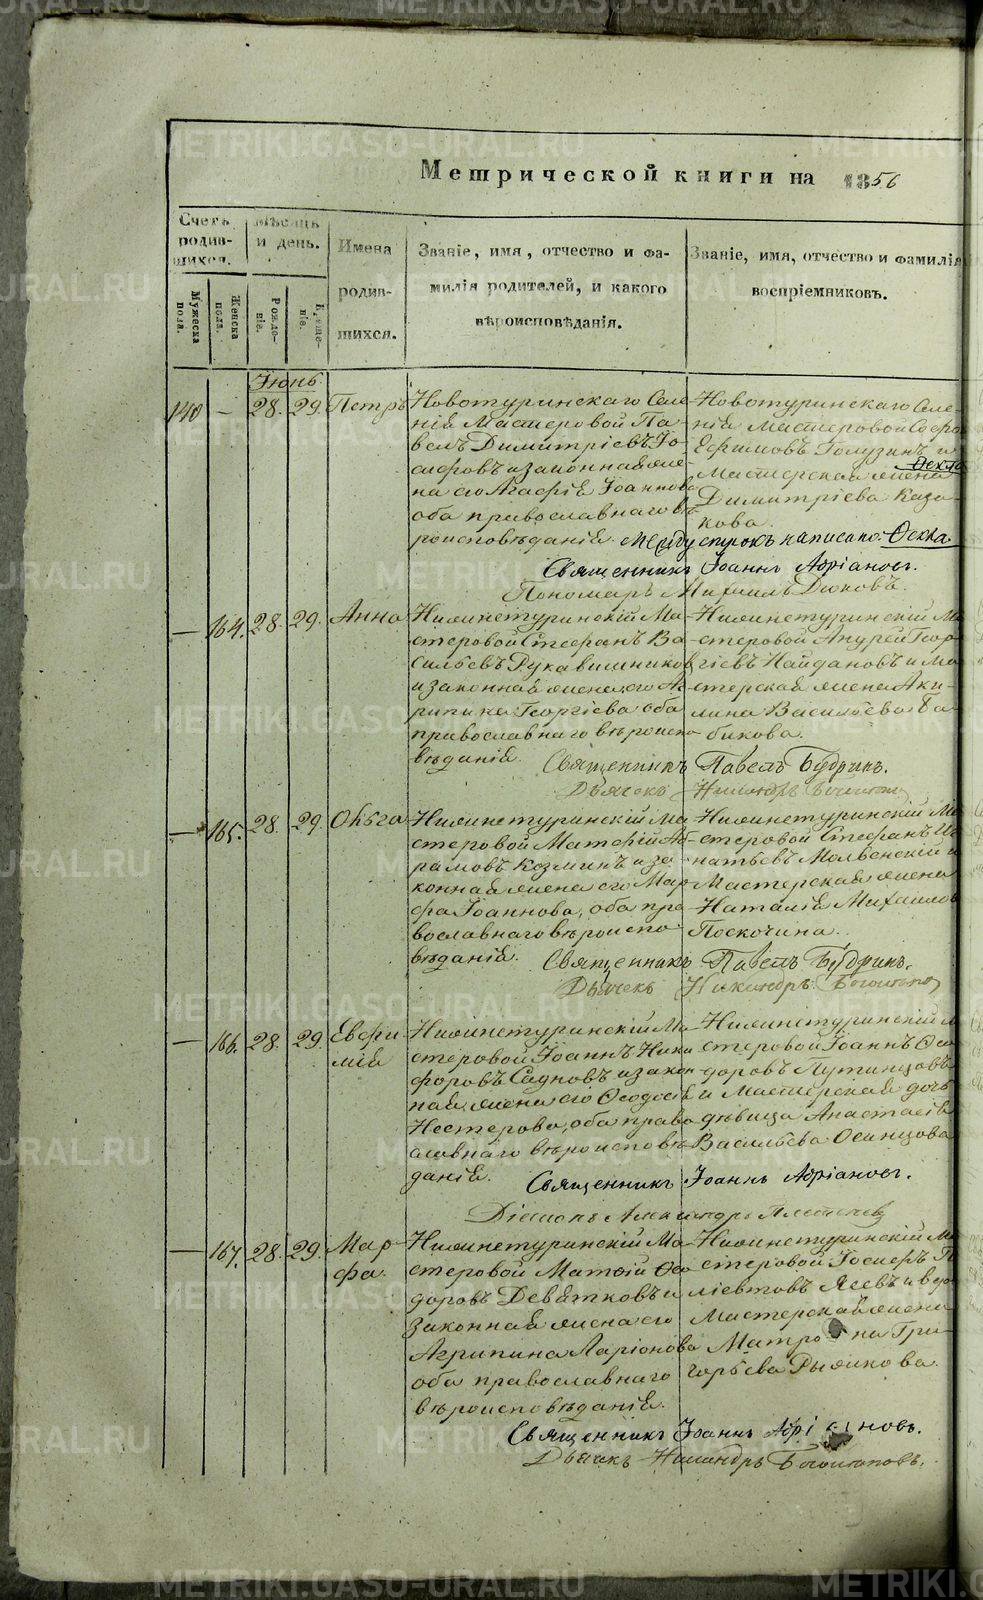 METRIKI.GASO-URAL.RU
Метрической книги на 1856
Счетъ родив-шихся.
Мѣсяцъ и день.
Имена родив-шихся.
Званіе, имя, отчество и фа-
милія родителей, и какого
вѣроисповѣданія.
Званіе, имя, отчество и фамилія
воспріемниковъ.
Мужеска пола.
Женска пола.
Рожде-ніе.
Креще-ніе.
Іюнь
140 — 28. 29. Петръ
Новотуринскаго Селе-
нія Мастеровой Па-
велъ Димитріевъ Іо-
сифовъ и законная же-
на его Агафія Іоаннова
оба православнаго вѣ-
роисповѣданія.
Новотуринскаго Селе-
нія Мастеровой
Ефимовъ Голузинъ и
Мастерская жена
Димитріева Каза-
кова.
Между строкъ написано: Фекла.
Священникъ Іоаннъ Адріановъ.
Пономарь Михаилъ Дюковъ.
— 164. 28. 29. Анна
Нижнетуринскій Ма-
стеровой Стефанъ Ва-
сильевъ Рукавишниковъ
и законная жена его Аг-
рипина Георгіева оба
православнаго вѣроиспо-
вѣданія.
Нижнетуринскій Ма-
стеровой Андрей Геор-
гіевъ Найдановъ и Ма-
стерская жена Аки-
лина Васильева Ба-
бикова.
Священникъ Павелъ Будринъ.
Дьячекъ
— 165. 28. 29. Ольга
Нижнетуринскій Ма-
стеровой Матфій Аб-
рамовъ Козминъ и за-
конная жена его Мар-
фа Іоаннова, оба пра-
вославнаго вѣроиспо-
вѣданія.
Нижнетуринскій Ма-
стеровой Стефанъ Иг-
натьевъ Мольвенскій и
Мастерская жена
Наталія Михайлова
Поскочина.
Священникъ Павелъ Будринъ.
Дьячекъ Никандръ
— 166. 28. 29. Евфи-
мія
Нижнетуринскій Ма-
стеровой Іоаннъ Ники-
форовъ Садковъ и закон-
ная жена его Ѳеодосія
Нестерова, оба право-
славнаго вѣроисповѣ-
данія.
Нижнетуринскій М
стеровой Іоаннъ Ѳео-
доровъ Путинцовъ
и Мастерская дочь
дѣвица Анастасія
Васильева Осинцова
Священникъ Іоаннъ Адріановъ.
Діаконъ Александръ
— 167. 28. 29. Мар-
фа.
Нижнетуринскій Ма-
стеровой Матвій Ѳео-
доровъ Девятковъ и
законная жена его
Агрипина Ларіонова
оба православнаго
вѣроисповѣданія.
Нижнетуринскій Ма-
стеровой Іосифъ
Мастерская жена
Матрона Гри-
горьева Рыжкова.
Священникъ Іоаннъ Адріановъ.
Дьячекъ Никандръ